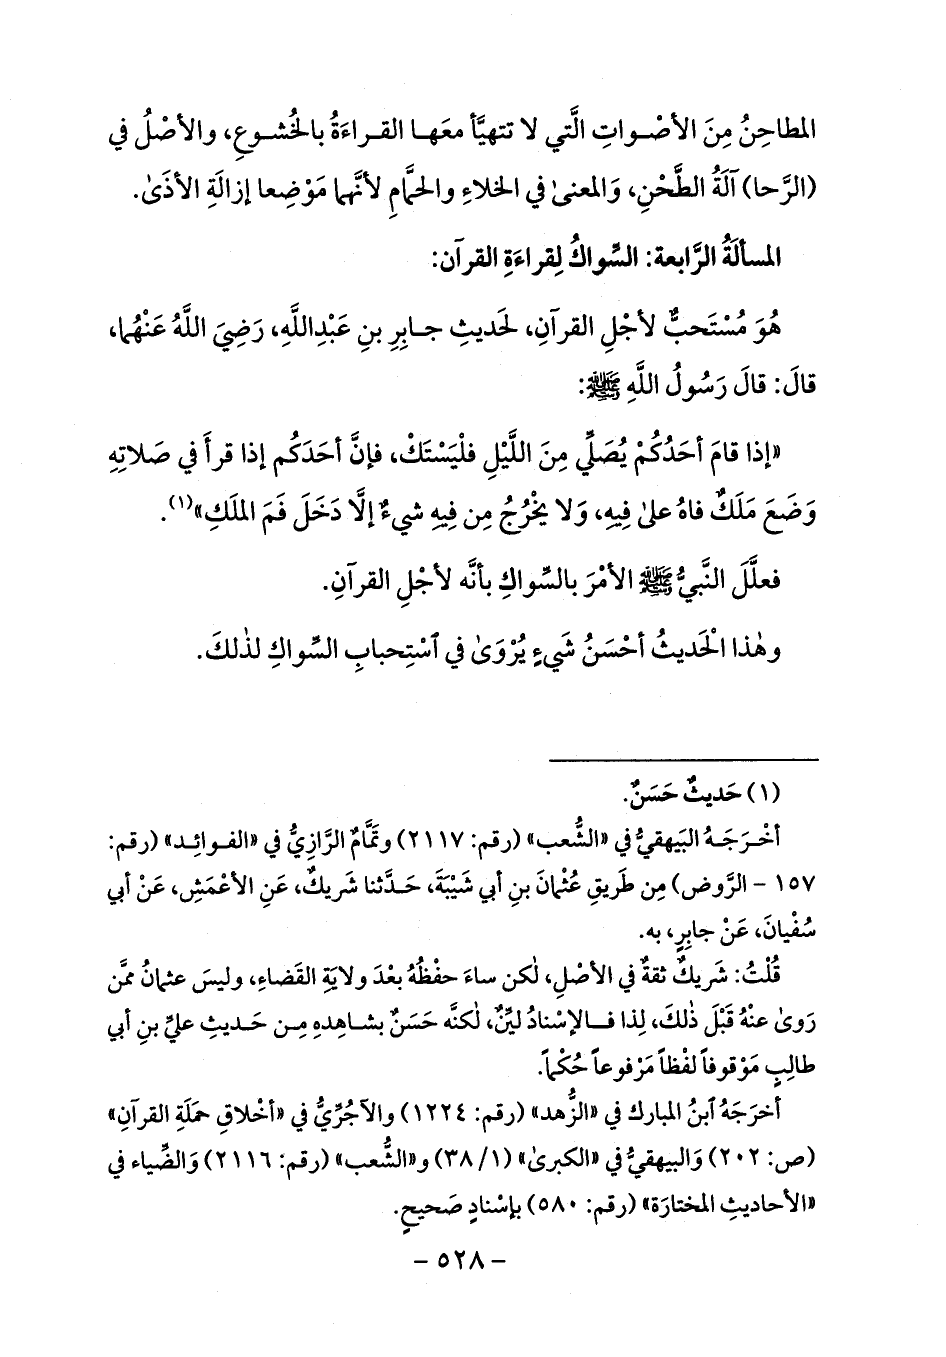 المطاحِنُ مِنَ الأصْواتِ الَّتي لا تتهيَّأ معَها القراءَةُ بالخُشوعِ، والأصْلُ في
(الرَّحا) آلَةُ الطَّحْنِ، وَالمعنىٰ في الخلاءِ والحمَّامِ لأنَّهما مَوْضِعا إزالَةِ الأذَىٰ.
المسألَةُ الرَّابعة: السِّواكُ لِقراءَةِ القرآن:
هُوَ مُسْتَحبٌّ لأجْلِ القرآنِ، لحَديثِ جابِرِ بنِ عَبْدِاللَّهِ، رَضِيَ اللَّهُ عَنْهُما،
قالَ: قالَ رَسُولُ اللَّهِ ﷺ:
«إذا قامَ أحَدُكُمْ يُصَلِّي مِنَ اللَّيْلِ فلْيَسْتَكْ، فإنَّ أحَدَكُم إذا قرأَ في صَلاتِهِ
وَضَعَ مَلَكٌ فاهُ علىٰ فِيهِ، وَلا يخْرُجُ مِن فِيهِ شيءٌ إلَّا دَخَلَ فَمَ الملَكِ»(١).
فعلَّلَ النَّبيُّ ﷺ الأمْرَ بالسِّواكِ بأنَّه لأجْلِ القرآنِ.
وهٰذا الْحَديثُ أحْسَنُ شَيءٍ يُرْوَىٰ في ٱسْتِحبابِ السِّواكِ لذٰلكَ.
(١) حَديثٌ حَسَنٌ.
أخْرَجَهُ البَيهقيُّ في «الشُّعب» (رقم: ٢١١٧) وتمَّامٌ الرَّازِيُّ في «الفوائِد» (رقم:
١٥٧ - الرَّوض) مِن طَريقِ عُثْمانَ بنِ أبي شَيْبَةَ، حَدَّثنا شَريكٌ، عَنِ الأعْمَشِ، عَنْ أبي
سُفْيانَ، عَنْ جابِرٍ، به.
قُلْتُ: شَريكٌ ثقةٌ في الأصْلِ، لٰكن ساءَ حفْظُهُ بعْدَ ولايَةِ القَضاءِ، وليسَ عثمانُ ممَّن
رَوىٰ عنْهُ قَبْلَ ذٰلكَ، لِذا فالإسْنادُ ليِّنٌ، لٰكنَّه حَسَنٌ بشاهِدِهِ مِن حَديثِ عليِّ بنِ أبي
طالِبٍ مَوْقوفاً لفْظاً مَرْفوعاً حُكْماً.
أخرَجَهُ ٱبنُ المبارك في «الزُّهد» (رقم: ١٢٢٤) والآجُرِّيُّ في «أخْلاقِ حمَلَةِ القرآنِ»
(ص: ٢٠٢) وَالبيهقيُّ في «الكبرىٰ» (٣٨/١) و«الشُّعب» (رقم: ٢١١٦) وَالضِّياء في
«الأحاديثِ المختارَة» (رقم: ٥٨٠) بإسْنادٍ صَحيحٍ.
- ٥٢٨ -